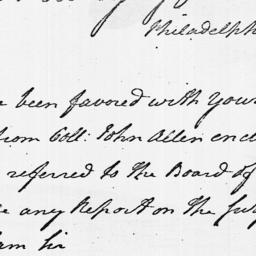 Philadelph
been favored with your
from Coll: John Allen encl
referred to the Board of
any Report on the Sub
am Sir